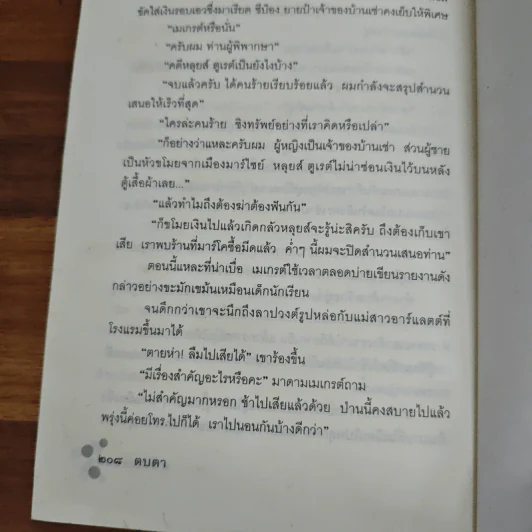 ขัดใส่เงินรอบเอวซึ่งมาเรียต ชีป๋อง ยายป้าเจ้าของบ้านเช่าคงเย็บให้พิเศษ
“เมเกรต์หรือนั่น”
“ครับผม ท่านผู้พิพากษา”
“คดีหลุยส์ ตูเรต์เป็นยังไงบ้าง”
“จบแล้วครับ ได้คนร้ายเรียบร้อยแล้ว ผมกำลังจะสรุปสำนวน
เสนอให้เร็วที่สุด”
“ใครล่ะคนร้าย ชิงทรัพย์อย่างที่เราคิดหรือเปล่า”
“ก็อย่างว่าแหละครับผม ผู้หญิงเป็นเจ้าของบ้านเช่า ส่วนผู้ชาย
เป็นหัวขโมยจากเมืองมาร์ไซย์ หลุยส์ ตูเรต์ไม่น่าซ่อนเงินไว้บนหลัง
ตู้เสื้อผ้าเลย...”
“แล้วทำไมถึงต้องฆ่าต้องฟันกัน”
“ก็ขโมยเงินไปแล้วเกิดกลัวหลุยส์จะรู้น่ะสิครับ ถึงต้องเก็บเขา
เสีย เราพบร้านที่มาร์โคซื้อมีดแล้ว ค่ำๆ นี้ผมจะปิดสำนวนเสนอท่าน”
ตอนนี้แหละที่น่าเบื่อ เมเกรต์ใช้เวลาตลอดบ่ายเขียนรายงานดัง
กล่าวอย่างขะมักเขม้นเหมือนเด็กนักเรียน
จนดึกกว่าเขาจะนึกถึงลาปวงต์รูปหล่อกับแม่สาวอาร์แลตต์ที่
โรงแรมขึ้นมาได้
“ตายห่า! ลืมไปเสียได้” เขาร้องขึ้น
“มีเรื่องสำคัญอะไรหรือคะ” มาดามเมเกรต์ถาม
“ไม่สำคัญมากหรอก ช้าไปเสียแล้วด้วย ป่านนี้คงสบายไปแล้ว
พรุ่งนี้ค่อยโทร.ไปก็ได้ เราไปนอนกันบ้างดีกว่า”
๒๐๘ ตบตา